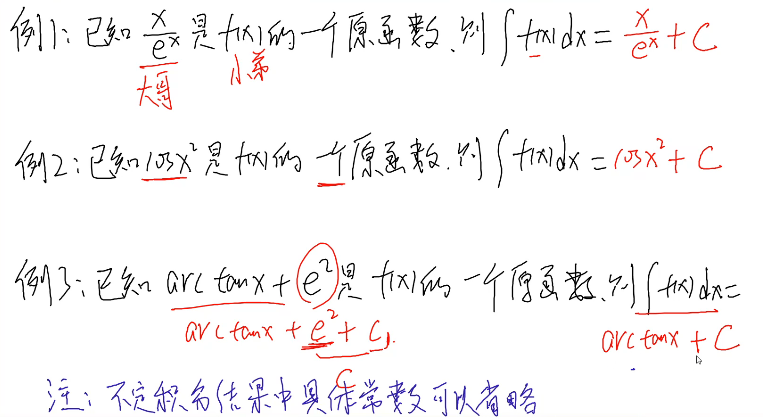 例1:已知 x/e^x 是f(x)的一个原函数,则∫f(x)dx= x/e^x + C
大哥 小弟
例2:已知cosx²是f(x)的一个原函数,则∫f(x)dx=cosx²+C
例3:已知 arctanx+e²是 f(x)的一个原函数,则∫f(x)dx=
arctanx+e²+C₁ arctanx+C
C
注:不定积分结果中具体常数可以省略